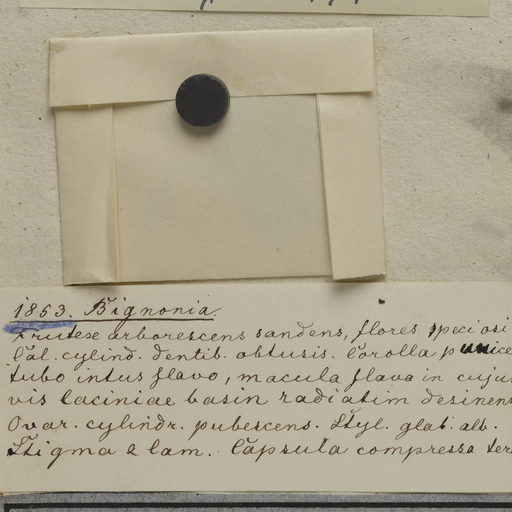 1853. Bignonia.
Frutex arborescens sandens, flores speciosi
Cal. cylind. dentib. obtusis. Corolla punice
tubo intus flavo, macula flava in cuju
vis laciniae basin radiatim desinen
Ovar. cylindr. pubescens. Styl. glab. alb.
Stigma 2 lam. Capsula compressa ter